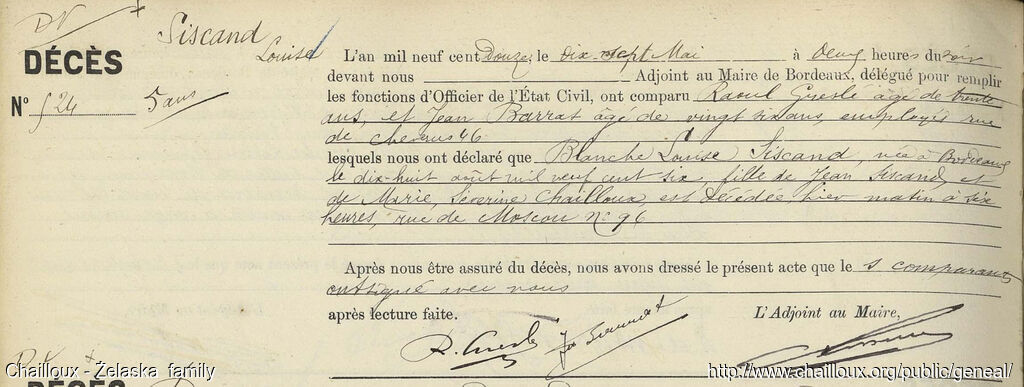 DN +
DÉCÈS
N° 524
5 ans
Siscand
Louise
L'an mil neuf cent Douze, le dix-sept Mai à deux heures du soir
devant nous Adjoint au Maire de Bordeaux, délégué pour remplir
les fonctions d'Officier de l'État Civil, ont comparu Raoul Guesle âgé de trente
ans, et Jean Barrat âgé de vingt six ans, employés rue
de Cheverus 46
lesquels nous ont déclaré que Blanche Louise Siscand, née à Bordeaux
le dix-huit août mil neuf cent six, fille de Jean Siscand, et
de Marie, Séverine Chailloux, est décédée hier matin à six
heures, rue de Moscou n° 96
Après nous être assuré du décès, nous avons dressé le présent acte que le s comparants
ont signé avec nous
après lecture faite. L'Adjoint au Maire,
R. Guesle
+
DÉCÈS
Chailloux - Želaska family
http://www.chailloux.org/public/geneal/